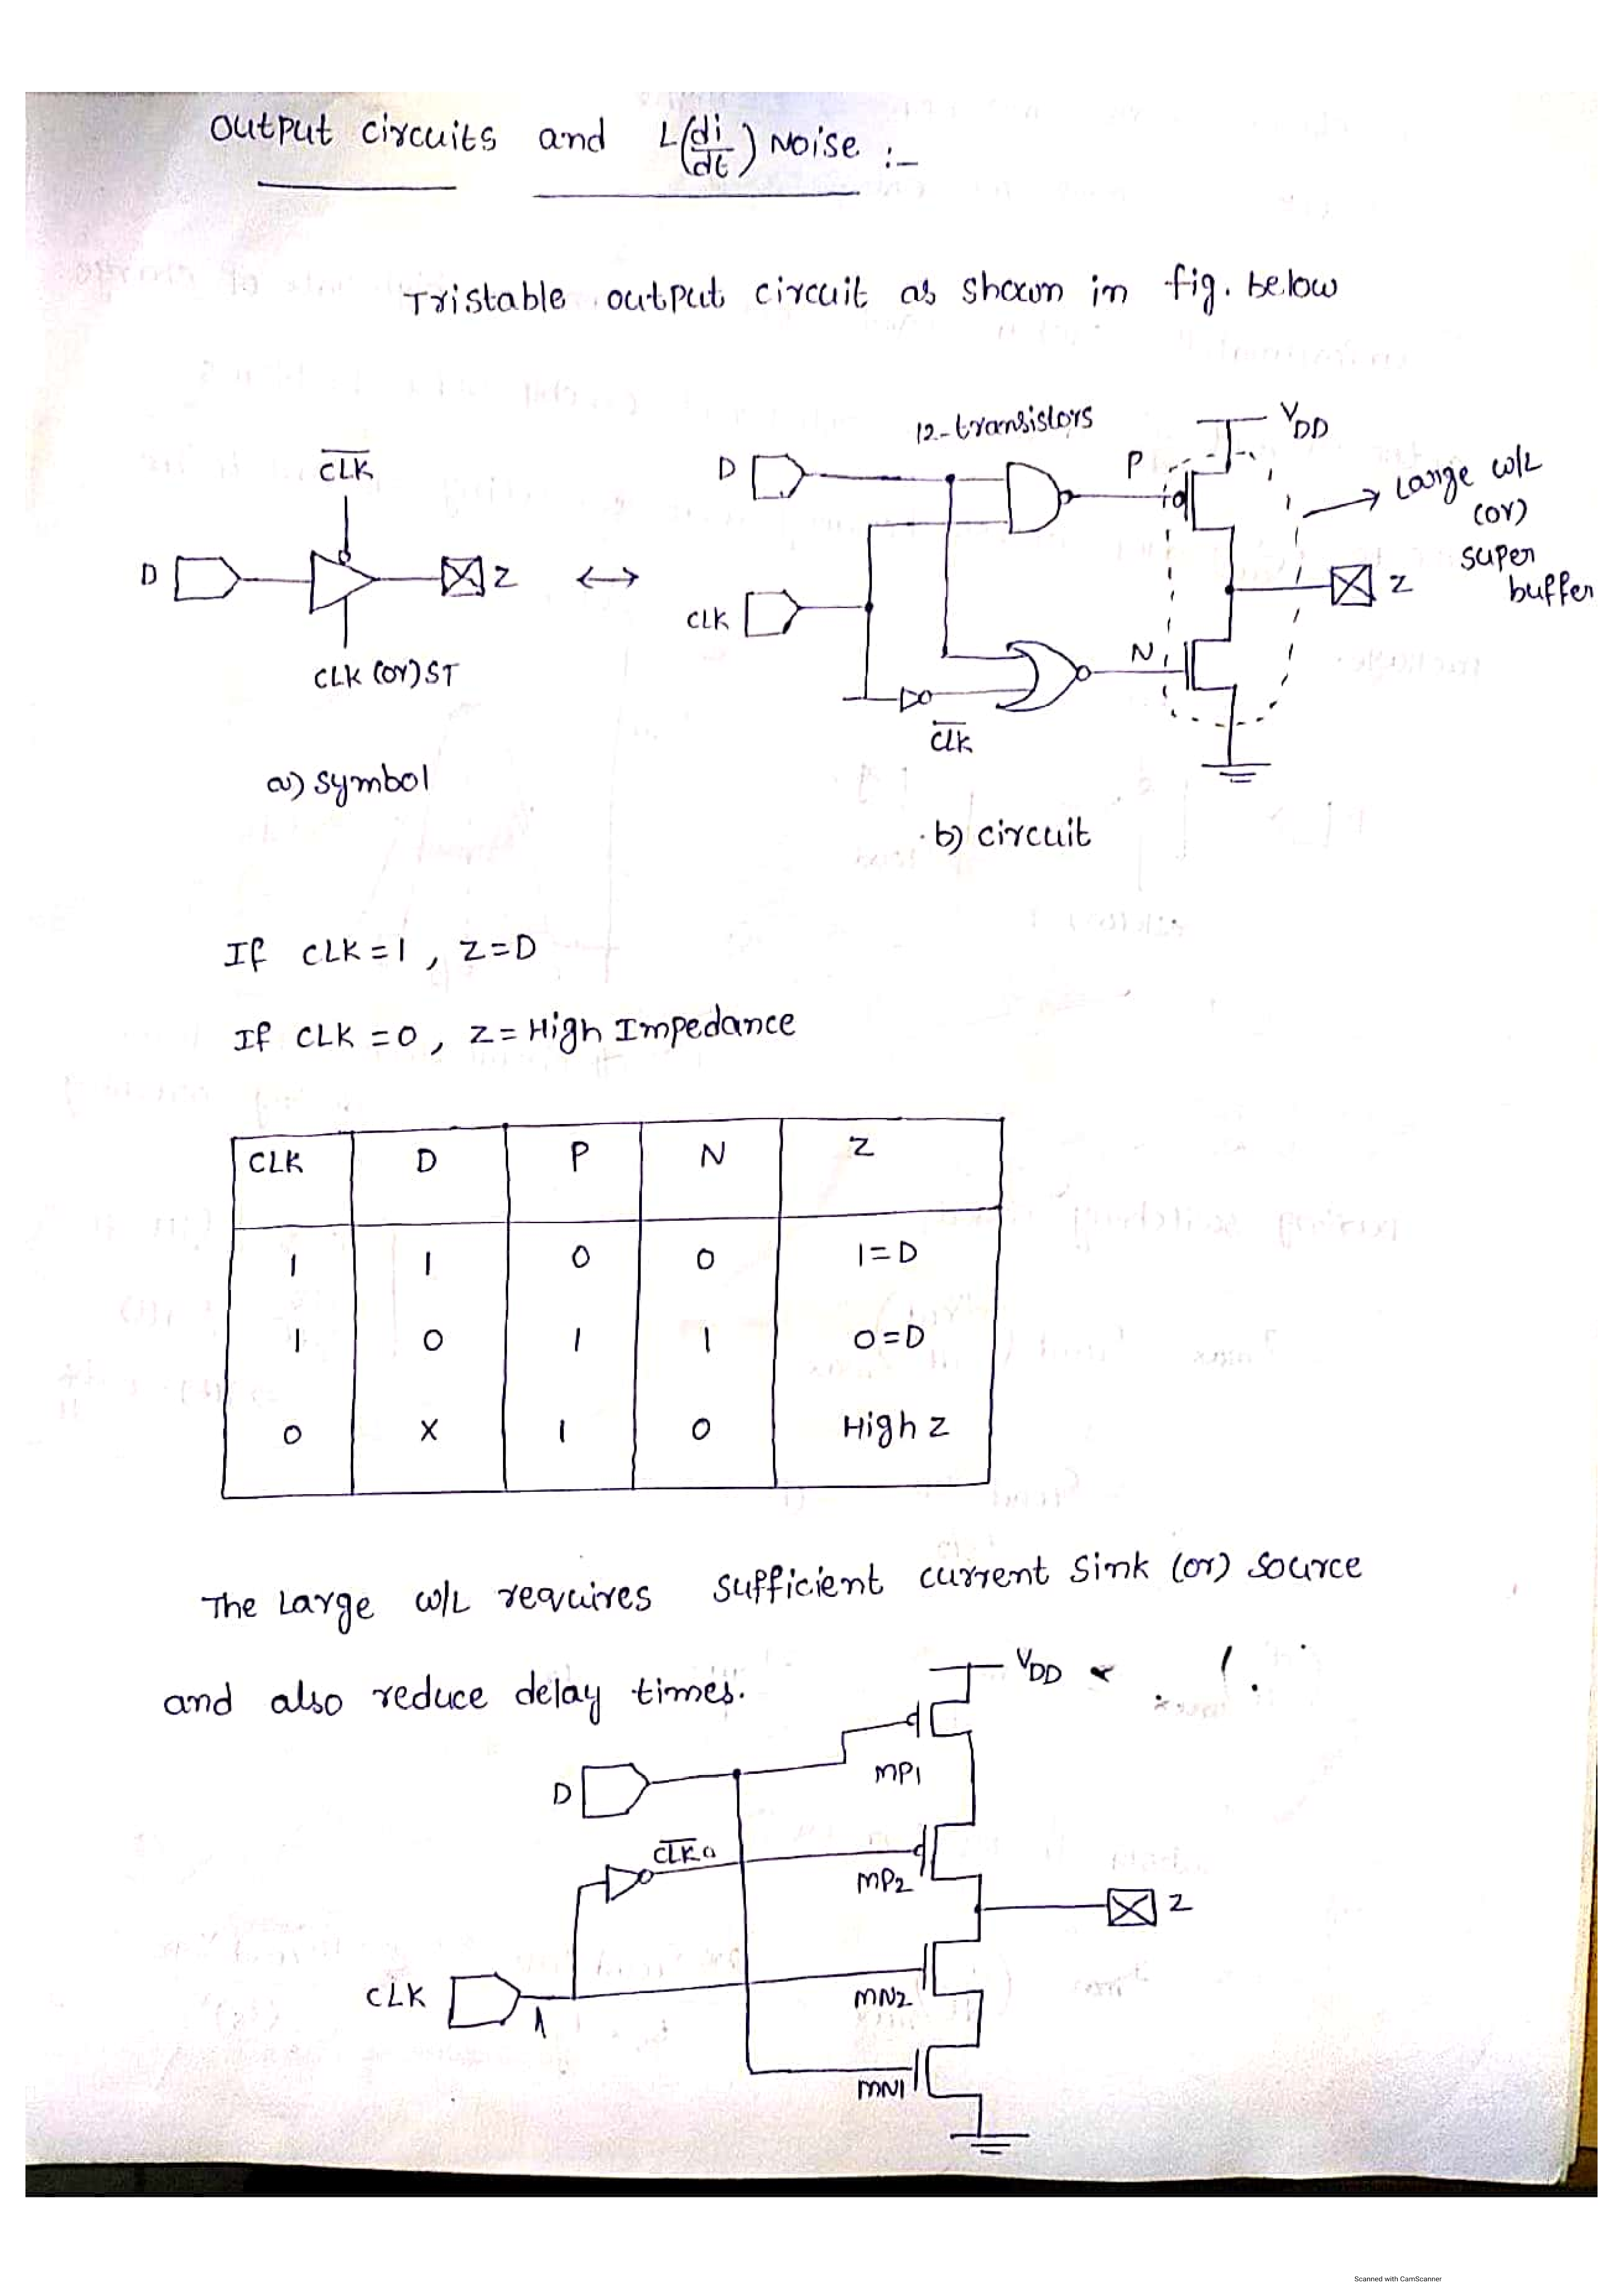 Output circuits and L(di/dt) Noise :-
Tristable output circuit as shown in fig. below
CLK̅
D
Z
CLK (or) ST
a) symbol
12-transistors
D
CLK
C̅l̅k̅
P
N
VDD
Z
Large W/L
(or)
super
buffer
b) circuit
If CLK = 1 , Z = D
If CLK = 0 , Z = High Impedance
CLK D P N Z
1 1 0 0 1 = D
1 0 1 1 0 = D
0 X 1 0 High Z
The Large W/L requires sufficient current Sink (or) Source
and also reduce delay times.
VDD
D
MP1
C̅L̅K̅
MP2
Z
CLK
MN2
MN1
Scanned with CamScanner